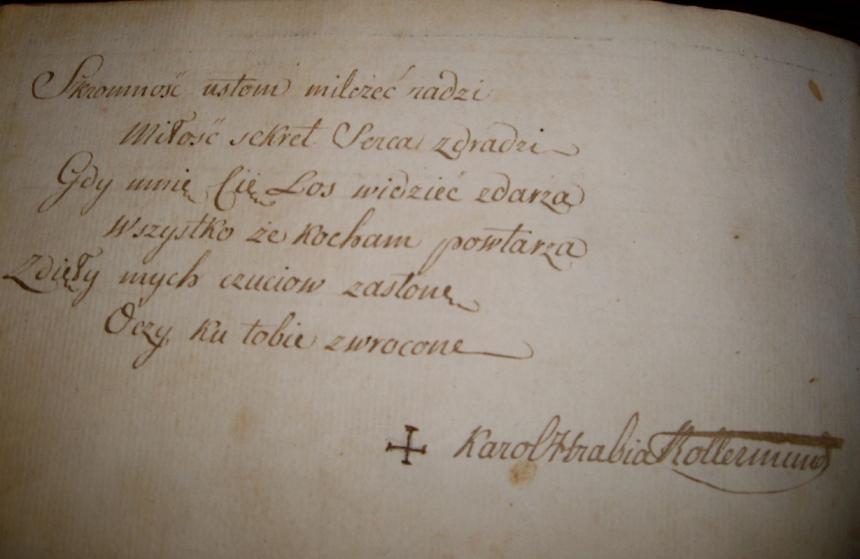 Skromność ustom milczeć radzi
Miłość sekret Serca zdradzi
Gdy mnie Cię Los widzieć zdarza
Wszystko że kocham powtarza
Zdięły mych czuciow zasłonę
Oczy ku tobie zwrocone
Karol Hrabia